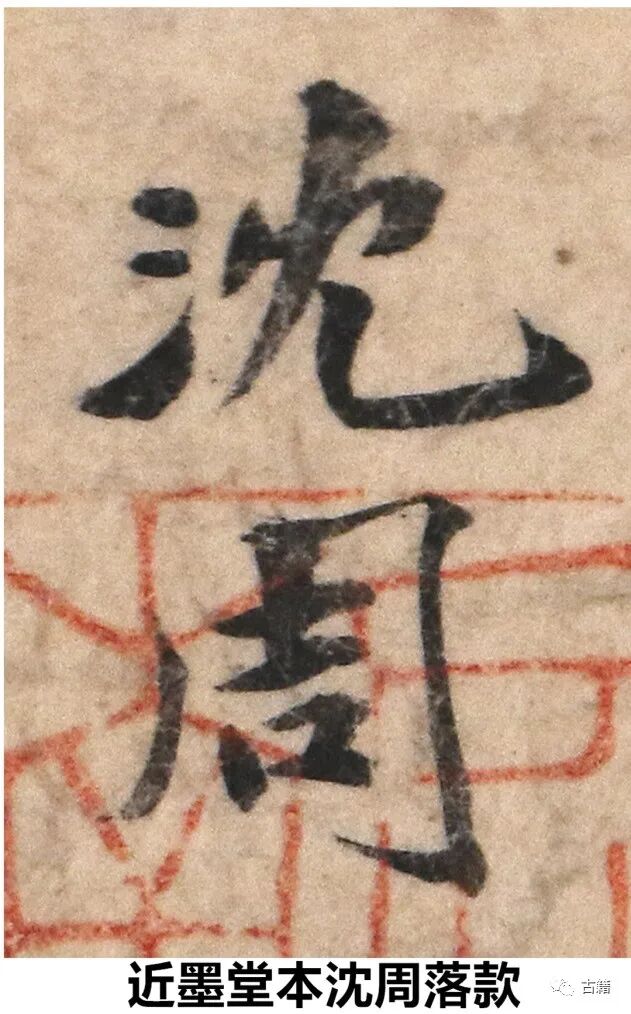 沈
周
近墨堂本沈周落款
古籍